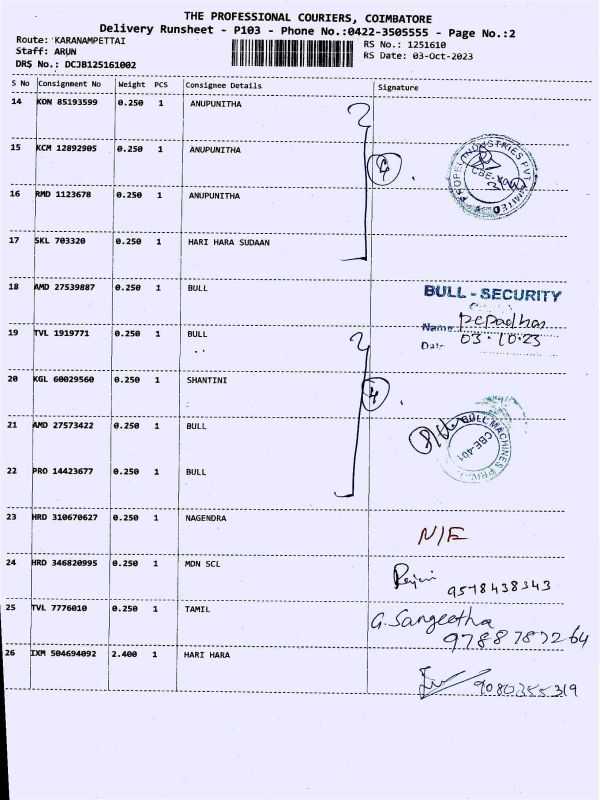 THE PROFESSIONAL COURIERS, COIMBATORE
Delivery Runsheet - P103 - Phone No.:0422-3505555 - Page No.:2
Route: KARANAMPETTAI
Staff: ARUN
DRS No.: DCJB125161002
RS No.: 1251610
RS Date: 03-Oct-2023
S No Consignment No Weight PCS Consignee Details Signature
14 KON 85193599 0.250 1 ANUPUNITHA
15 KCM 12892905 0.250 1 ANUPUNITHA
4
PROPEL INDUSTRIES PVT LIMITED
16 RMD 1123678 0.250 1 ANUPUNITHA
17 SKL 703320 0.250 1 HARI HARA SUDAAN
18 AMD 27539887 0.250 1 BULL
BULL - SECURITY
Name
19 TVL 1919771 0.250 1 BULL
Date 03.10.23
20 KGL 60029560 0.250 1 SHANTINI
4
21 AMD 27573422 0.250 1 BULL
BULL MACHINES PRIVATE
CBE-401
22 PRO 14423677 0.250 1 BULL
23 HRD 310670627 0.250 1 NAGENDRA
24 HRD 346820995 0.250 1 MDN SCL
9578438343
25 TVL 7776010 0.250 1 TAMIL
G. Sangeetha
9788787264
26 IXM 504694092 2.400 1 HARI HARA
9080355319